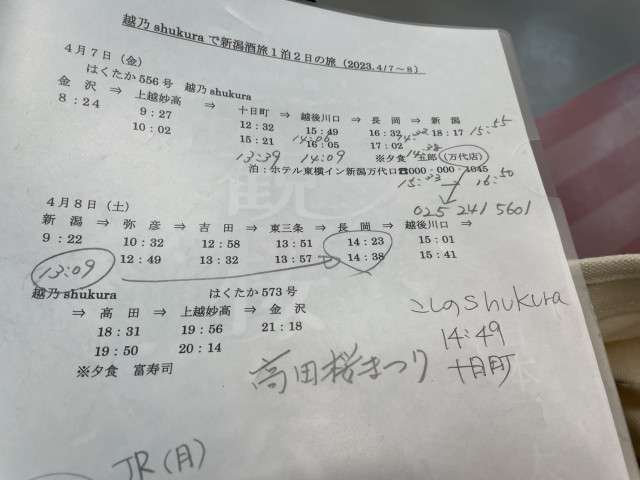 越乃 shukura で新潟酒旅1泊2日の旅（2023.4/7～8）
4月7日（金）
はくたか 556 号　越乃 shukura
金沢 ⇒ 上越妙高 ⇒ 十日町 ⇒ 越後川口 ⇒ 長岡 ⇒ 新潟
8：24　9：27　12：32　15：49　16：32　18：17　15:55
10：02　15：21　14:06　16：05　17：02
13:39　14:09　※夕食　五郎（万代店）
泊：ホテル東横イン新潟万代口☎000‐000‐1045
15:33　16:50
025 241 5601
4月8日（土）
新潟 ⇒ 弥彦 ⇒ 吉田 ⇒ 東三条 ⇒ 長岡 ⇒ 越後川口 ⇒
9：22　10：32　12：58　13：51　14：23　15：01
13:09　12：49　13：32　13：57　14：38　15：41
越乃 shukura　はくたか 573 号
⇒ 高田 ⇒ 上越妙高 ⇒ 金沢
18：31　19：56　21：18
19：50　20：14
※夕食　富寿司
こしのshukura
14:49
十日町
高田桜まつり
JR(月)